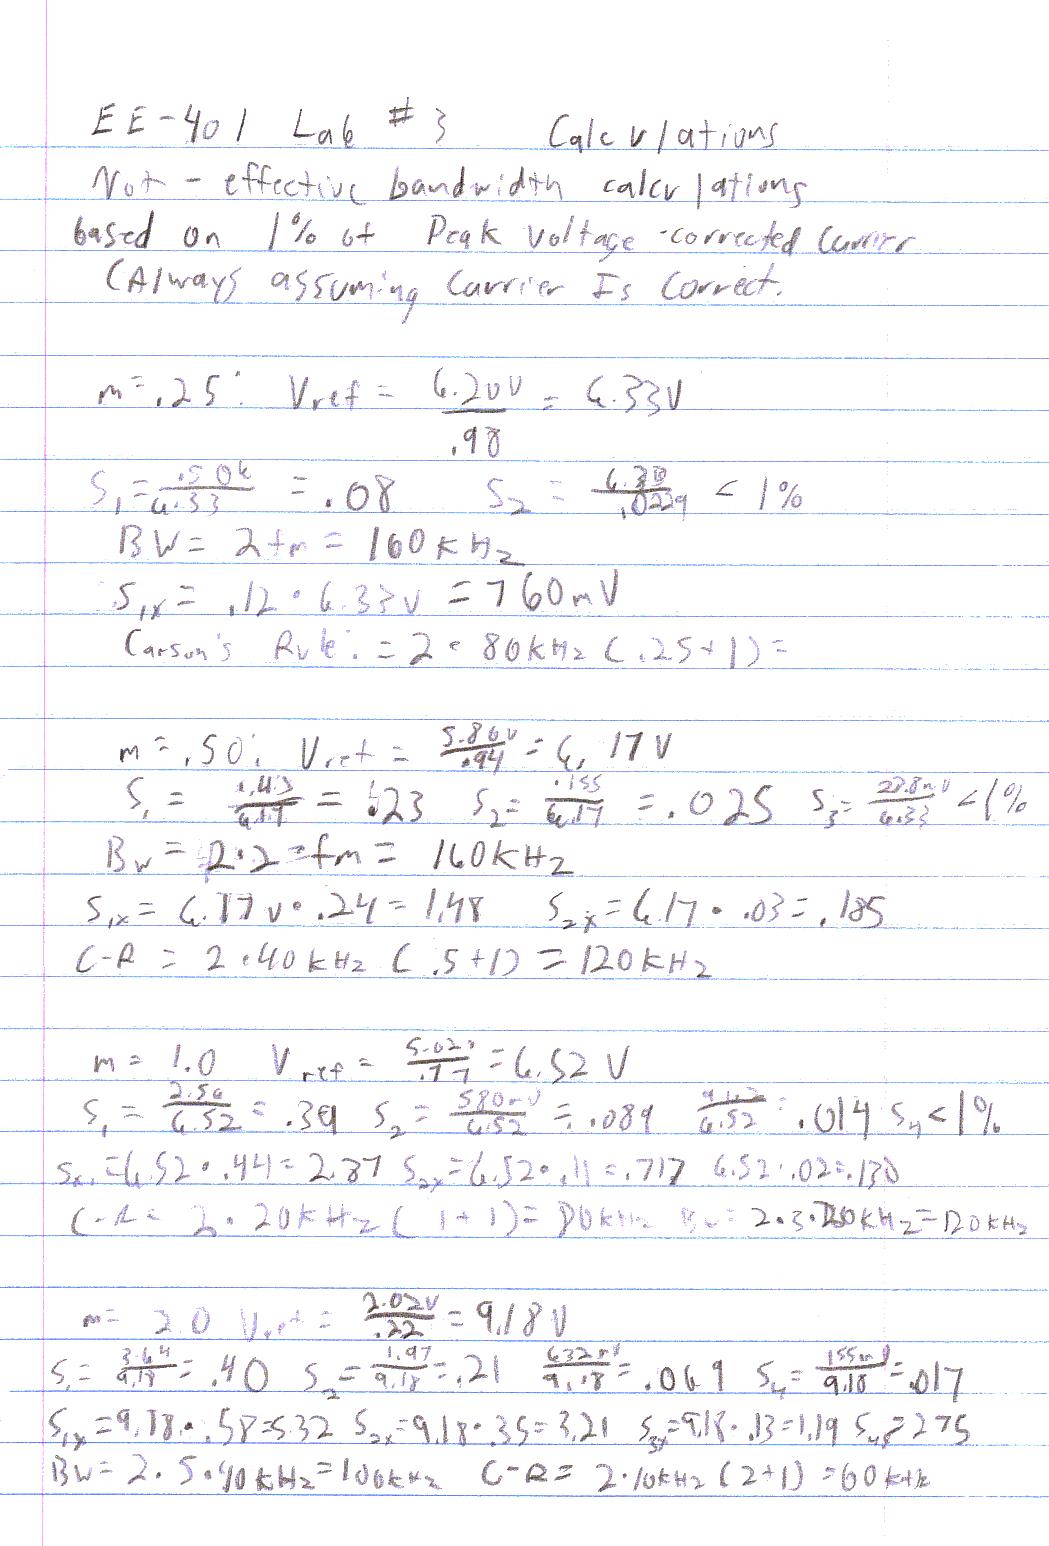 EE-401 Lab #3 Calculations
Not - effective bandwidth calculations
based on 1% of Peak voltage-corrected Carrier
(Always assuming Carrier Is Correct.
m=.25: Vref = 6.20V/.98 = 6.33V
S1 = .506/6.33 = .08 S2 = 6.33/.0239 < 1%
BW = 2fm = 160KHz
S1x = .12 • 6.33v = 760mV
Carson's Rule: = 2 • 80KHz (.25+1) =
m=.50: Vref = 5.80v/.94 = 6.17V
S1 = 1.43/6.17 = .23 S2 = .155/6.17 = .025 S3 = 27.8mV/6.33 <1%
BW = 2•2 fm = 160KHz
S1x = 6.17v • .24 = 1.48 S2x = 6.17 • .03 = .185
C-R = 2•40KHz (.5+1) = 120KHz
m = 1.0 Vref = 5.02v/.77 = 6.52 V
S1 = 2.56/6.52 = .39 S2 = 580mV/6.52 = .089 /6.52 = .014 S4 <1%
Sx1 = 6.52•.44 = 2.87 S2x = 6.52•.11 = .717 6.52•.02=.130
C-R = 2•20KHz (1+1) = 80KHz BW = 2•3•20KHz = 120KHz
m = 2.0 Vref = 2.02V/.22 = 9.18V
S1 = 3.64/9.18 = .40 S2 = 1.97/9.18 = .21 632mV/9.18 = .069 S4 = 155mV/9.18 = .017
S1x = 9.18•.58=5.32 S2x=9.18•.35=3.21 S3x=9.18•.13=1.19 S4x=275
BW = 2•5•10KHz = 100KHz C-R = 2•10KHz (2+1) = 60KHz